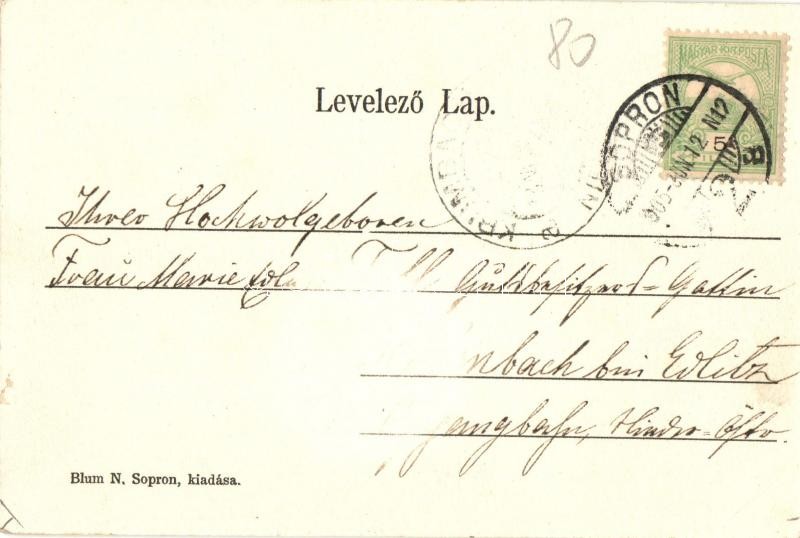 80
MAGYAR KIR. POSTA
5
Levelező Lap.
SOPRON
905 JUN 12 N12
B
KRUMBA
Ihrer Hochwolgeboren
Frau Marie Edl Gutsbesitzers=Gattin
nbach bei Edlitz
angbahn, Nieder=Östr.
Blum N. Sopron, kiadása.